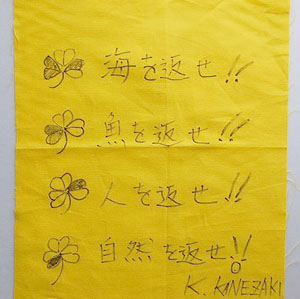 海を返せ!!
魚を返せ!!
人を返せ!!
自然を返せ!!
K. KANEZAKI